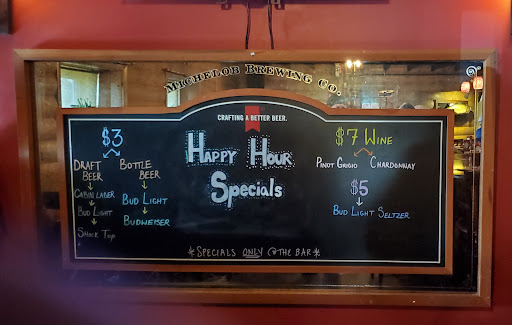 MICHELOB BREWING CO.
CRAFTING A BETTER BEER.
HAPPY HOUR
SPECIALS
$3
DRAFT BEER
CABIN LAGER
BUD LIGHT
SHOCK TOP
BOTTLE BEER
BUD LIGHT
BUDWEISER
$7 WINE
PINOT GRIGIO CHARDONNAY
$5
BUD LIGHT SELTZER
*SPECIALS ONLY @ THE BAR*